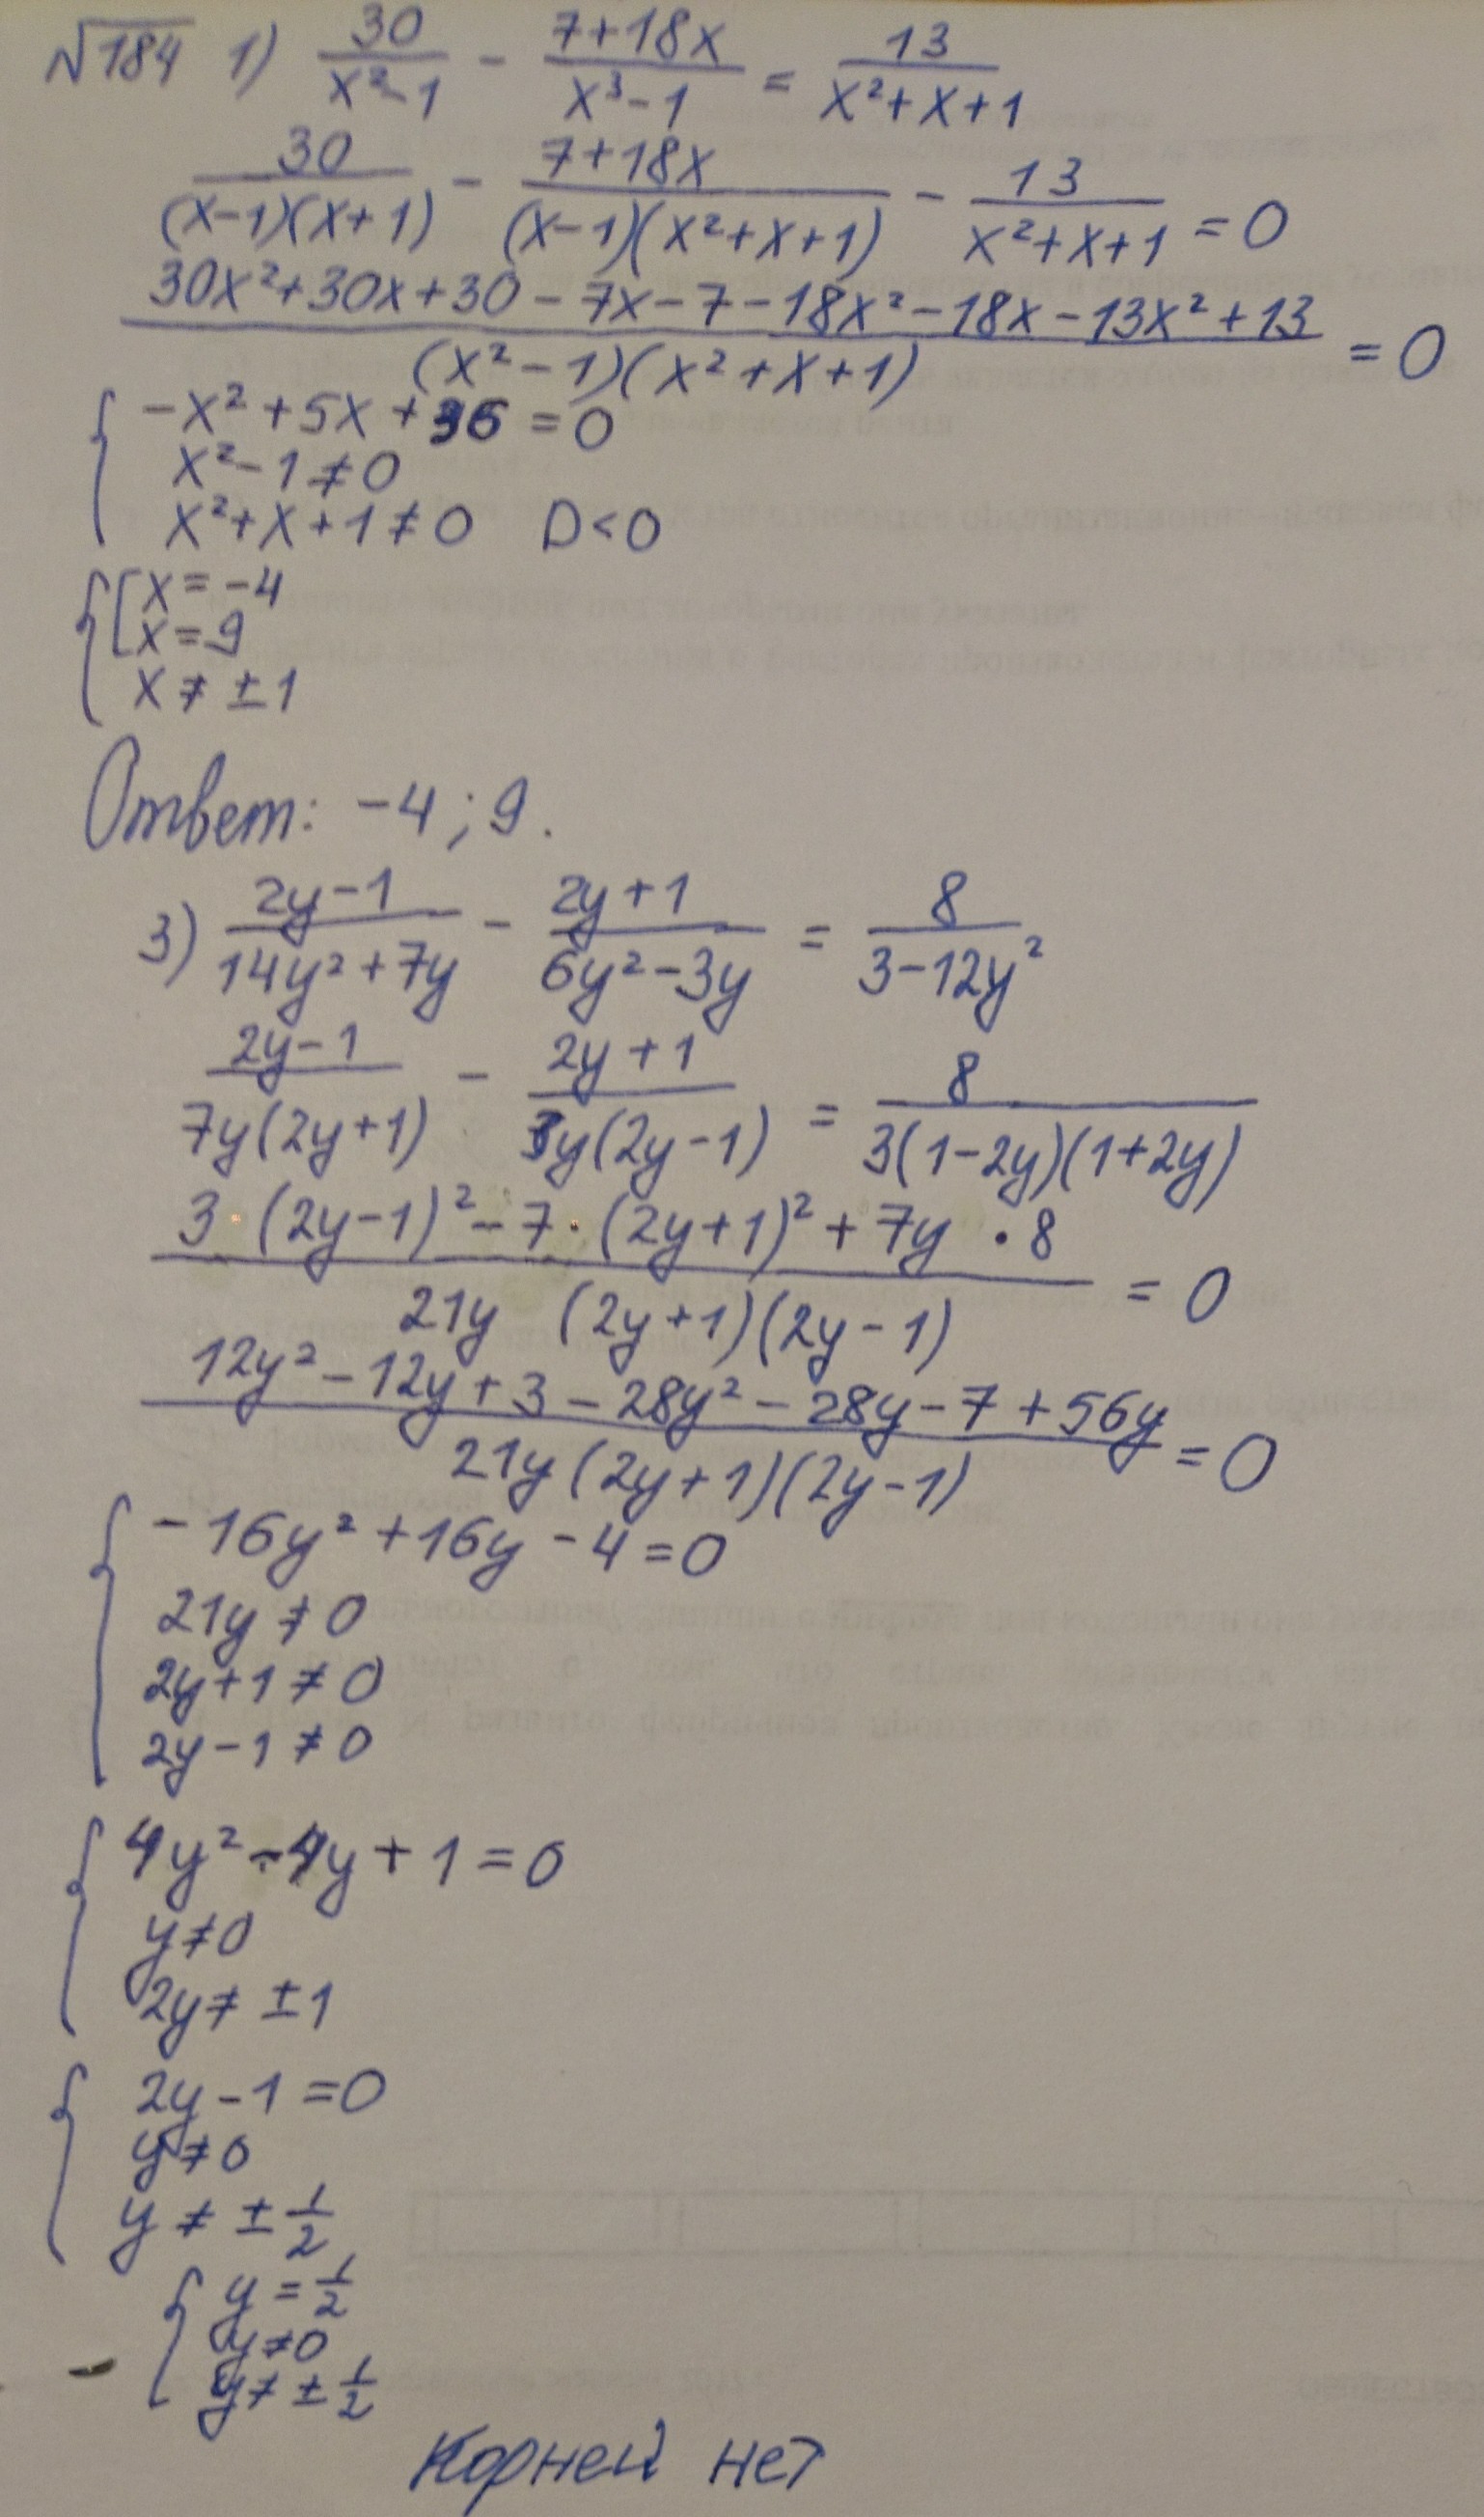 √184 1) 30/(x²-1) - (7+18x)/(x³-1) = 13/(x²+x+1)
30/((x-1)(x+1)) - (7+18x)/((x-1)(x²+x+1)) - 13/(x²+x+1) = 0
(30x²+30x+30-7x-7-18x²-18x-13x²+13)/((x²-1)(x²+x+1)) = 0
{ -x²+5x+36=0
x²-1≠0
x²+x+1≠0 D<0
{ [ x=-4
x=9
x≠±1
Ответ: -4; 9.
3) (2y-1)/(14y²+7y) - (2y+1)/(6y²-3y) = 8/(3-12y²)
(2y-1)/(7y(2y+1)) - (2y+1)/(3y(2y-1)) = 8/(3(1-2y)(1+2y))
(3·(2y-1)²-7·(2y+1)²+7y·8)/(21y (2y+1)(2y-1)) = 0
(12y²-12y+3-28y²-28y-7+56y)/(21y(2y+1)(2y-1)) = 0
{ -16y²+16y-4=0
21y≠0
2y+1≠0
2y-1≠0
{ 4y²-4y+1=0
y≠0
2y≠±1
{ 2y-1=0
y≠0
y≠±1/2
{ y=1/2
y≠0
y≠±1/2
Корней нет